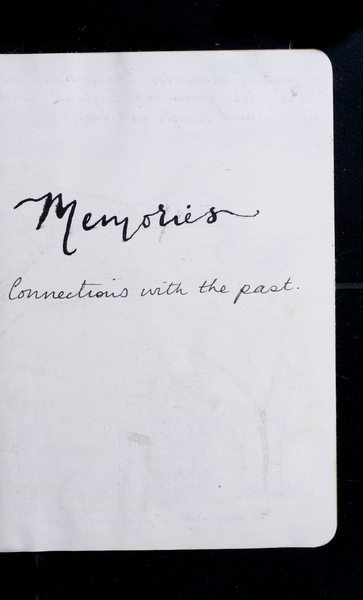 Memories
Connections with the past.